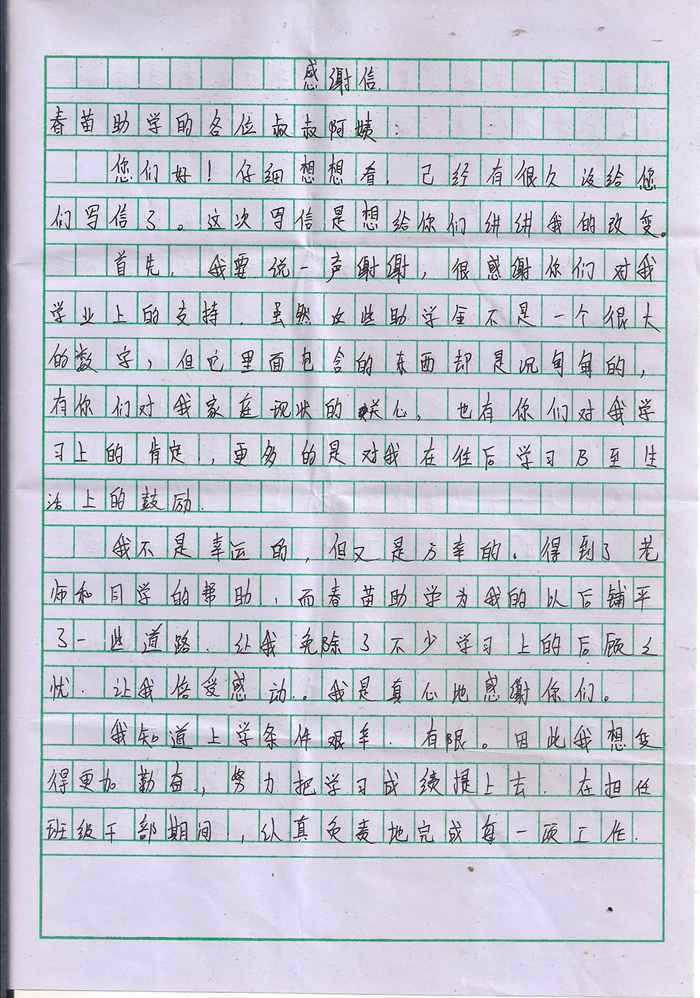 感谢信
春苗助学的各位叔叔阿姨：
您们好！仔细想想看 已经有很久没给您
们写信了。这次写信是想给你们讲讲我的改变。
首先，我要说一声谢谢，很感谢你们对我
学业上的支持．虽然这些助学金不是一个很大
的数字，但它里面包含的东西却是沉甸甸的，
有你们对我家庭现状的关心，也有你们对我学
习上的肯定，更多的是对我在往后学习及至生
活上的鼓励．
我不是幸运的，但又是万幸的。得到了老
师和同学的帮助，而春苗助学为我的以后铺平
了一些道路．让我免除了不少学习上的后顾之
忧．让我倍受感动。我是真心地感谢你们。
我知道上学条件艰辛．有限。因此我想变
得更加勤奋，努力把学习成绩提上去．在担任
班级干部期间，认真负责地完成每一项工作．